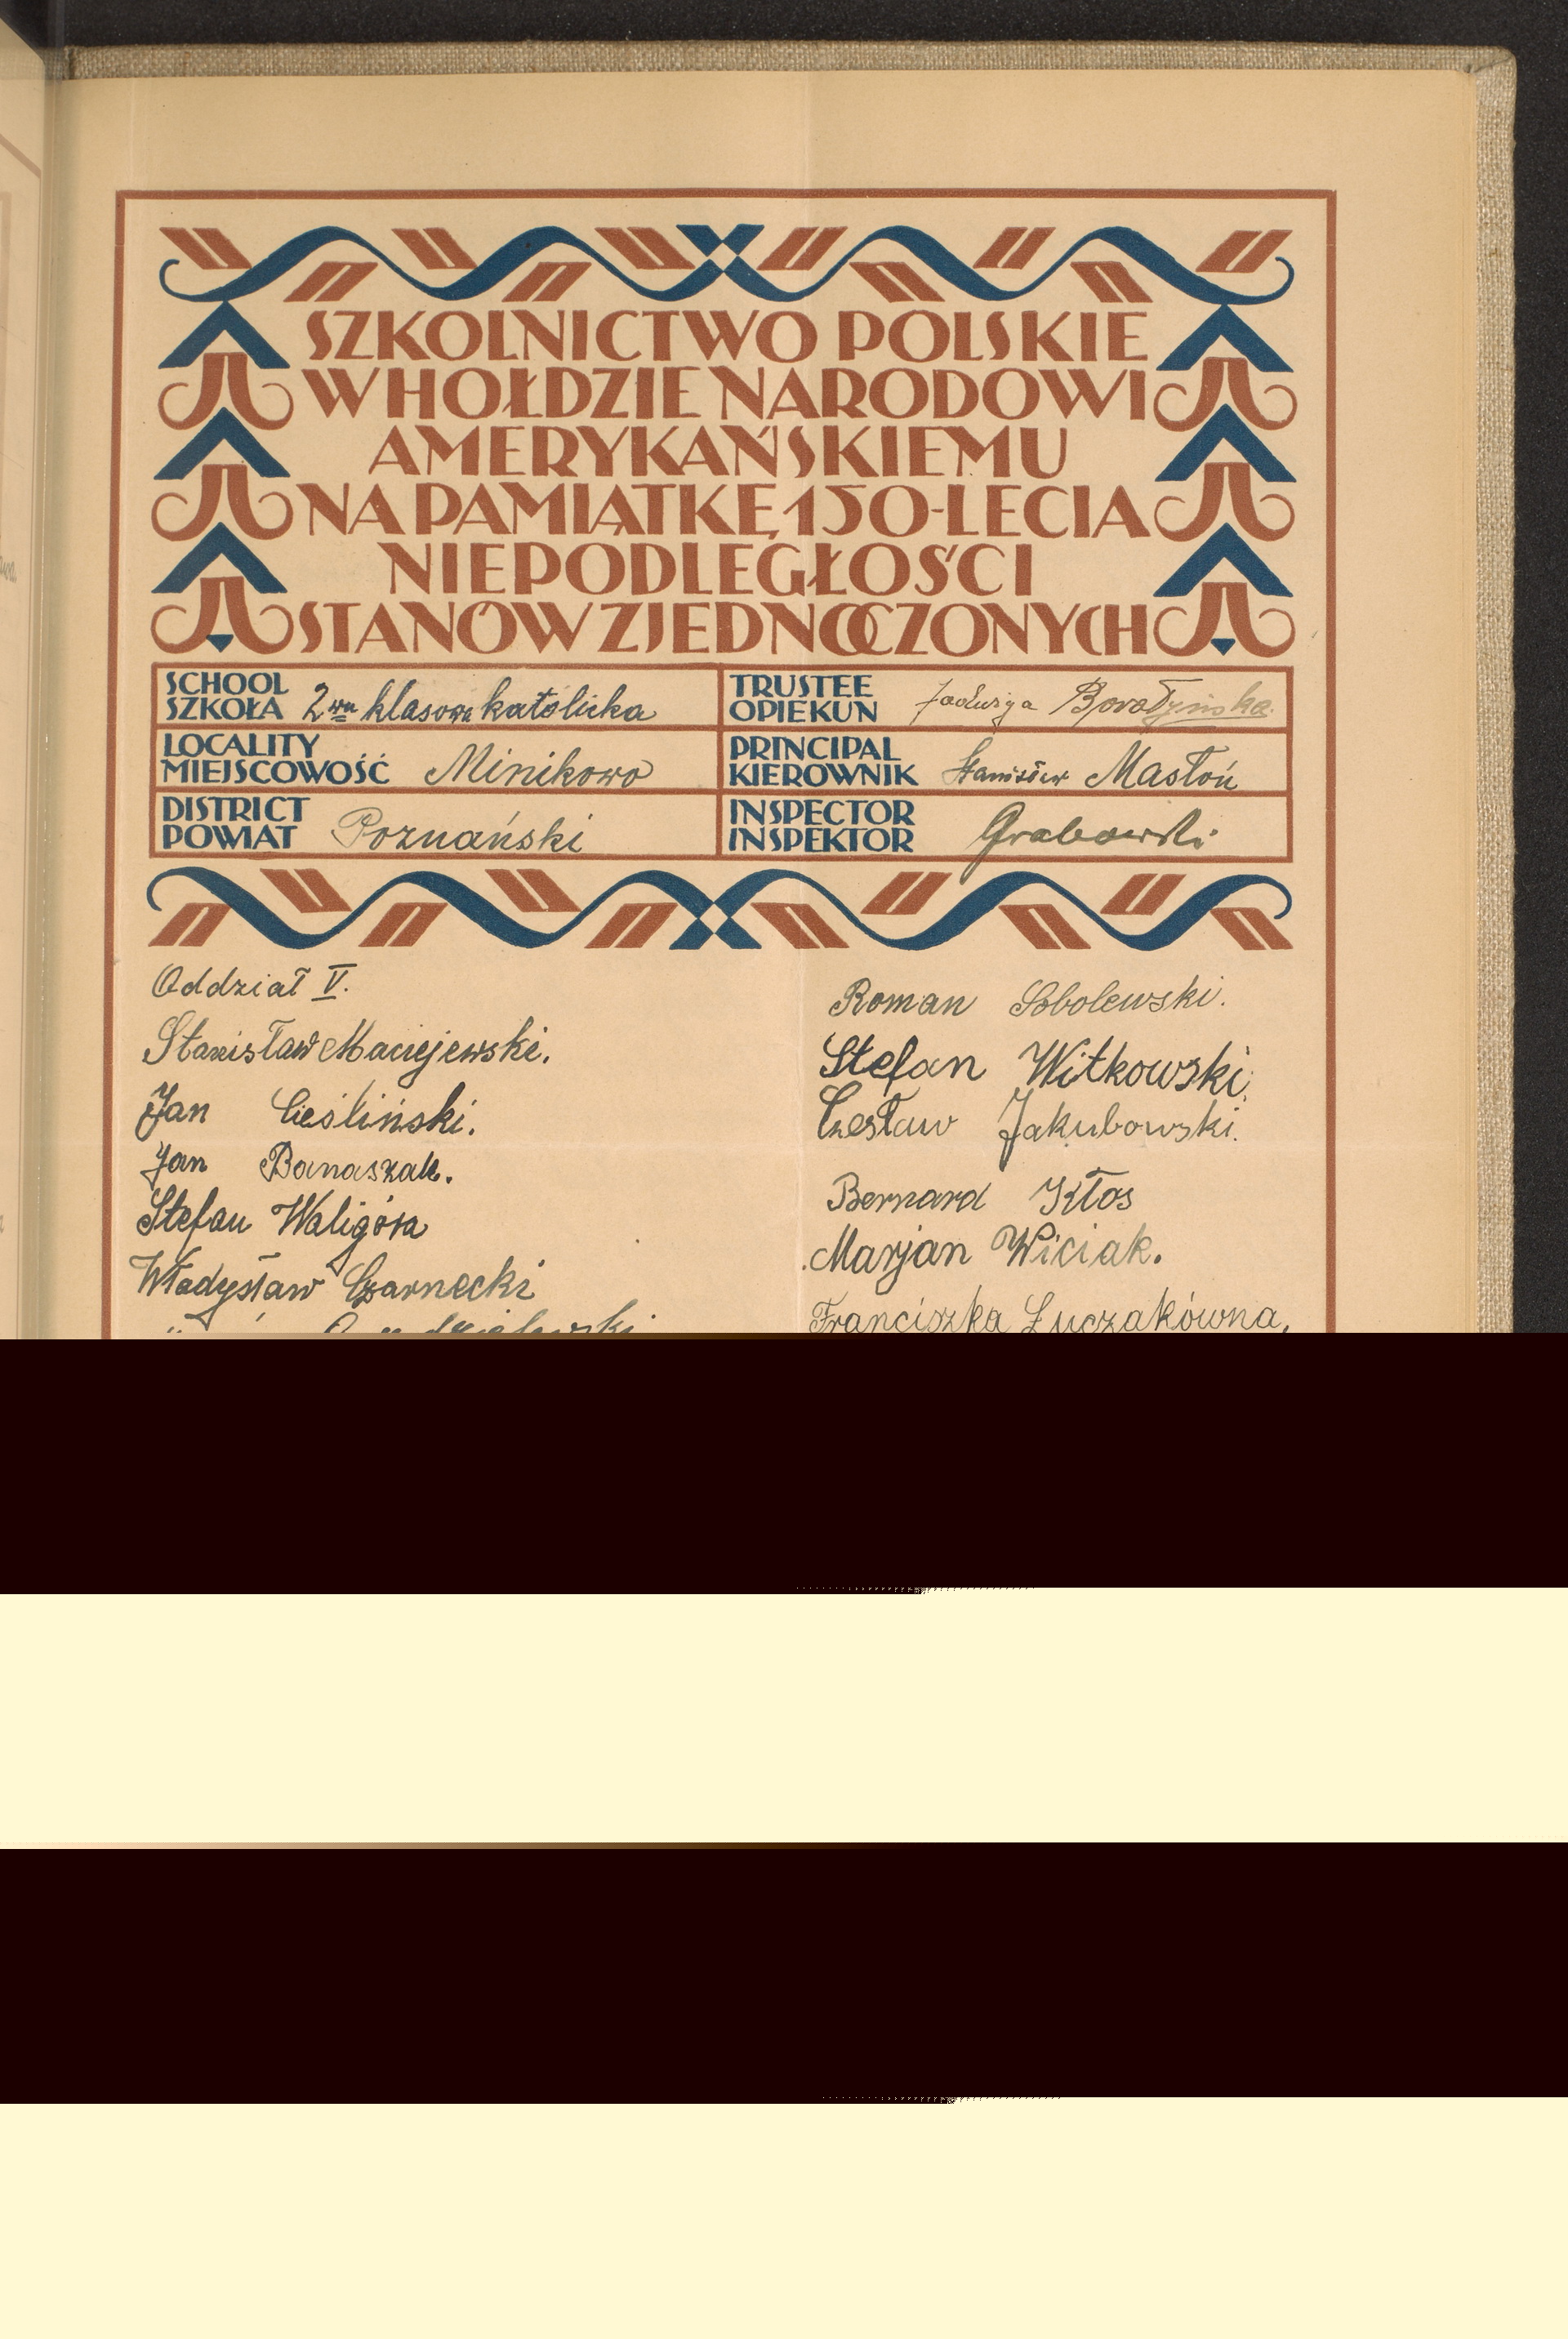 SZKOLNICTWO POLSKIE
W HOŁDZIE NARODOWI
AMERYKAŃSKIEMU
NA PAMIĄTKĘ 150-LECIA
NIEPODLEGŁOŚCI
STANÓW ZJEDNOCZONYCH
SCHOOL
SZKOŁA 2wu klasowa katolicka
LOCALITY
MIEJSCOWOŚĆ Minikowo
DISTRICT
POWIAT Poznański
TRUSTEE
OPIEKUN Jadwiga
PRINCIPAL
KIEROWNIK Stanisław Mastoń
INSPECTOR
INSPEKTOR Grabowski
Oddział V.
Stanisław Maciejewski.
Jan Cieśliński.
Jan Banaszak.
Stefan Waligóra
Władysław Czarnecki
Roman Sobolewski.
Stefan Witkowski.
Czesław Jakubowski.
Bernard Kłos
Marjan Wiciak.
Franciszka Łuczakówna,